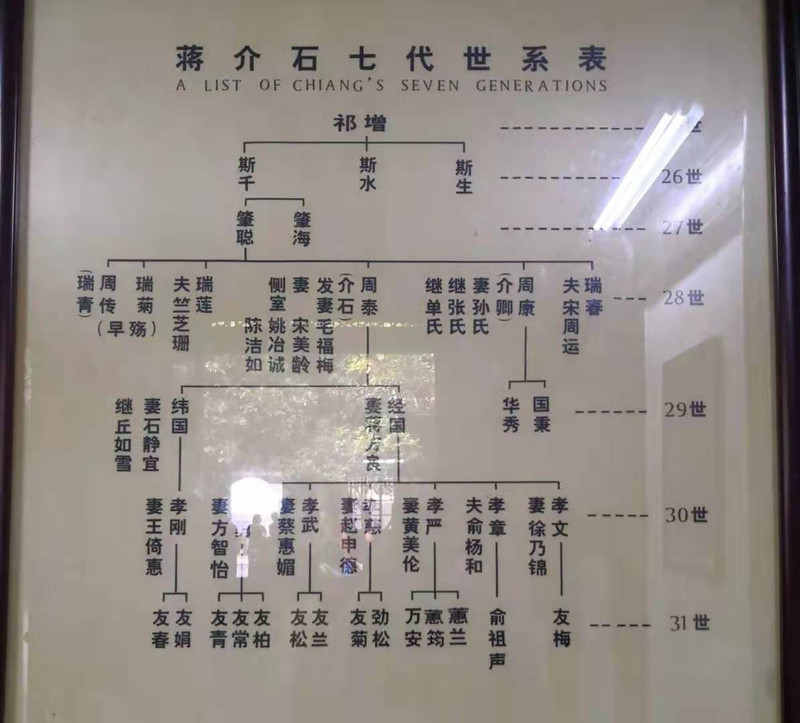 蒋介石七代世系表
A LIST OF CHIANG'S SEVEN GENERATIONS
祁增
世
斯千
斯水
斯生
26世
肇聪
肇海
27世
(瑞青)
周传
瑞菊
(早殇)
夫竺芝珊
瑞莲
侧室 姚冶诚
陈洁如
妻 宋美龄
发妻毛福梅
(介石)
周泰
继单氏
继张氏
妻孙氏
(介卿)
周康
夫宋周运
瑞春
28世
继丘如雪
妻石静宜
纬国
妻蒋方良
经国
华秀
国秉
29世
妻王倚惠
孝刚
妻方智怡
勇
妻蔡惠媚
孝武
妻赵申德
妻黄美伦
孝严
夫俞杨和
孝章
妻徐乃锦
孝文
30世
友春
友娟
友青
友常
友柏
友松
友兰
友菊
劲松
万安
蕙筠
蕙兰
俞祖声
友梅
31世